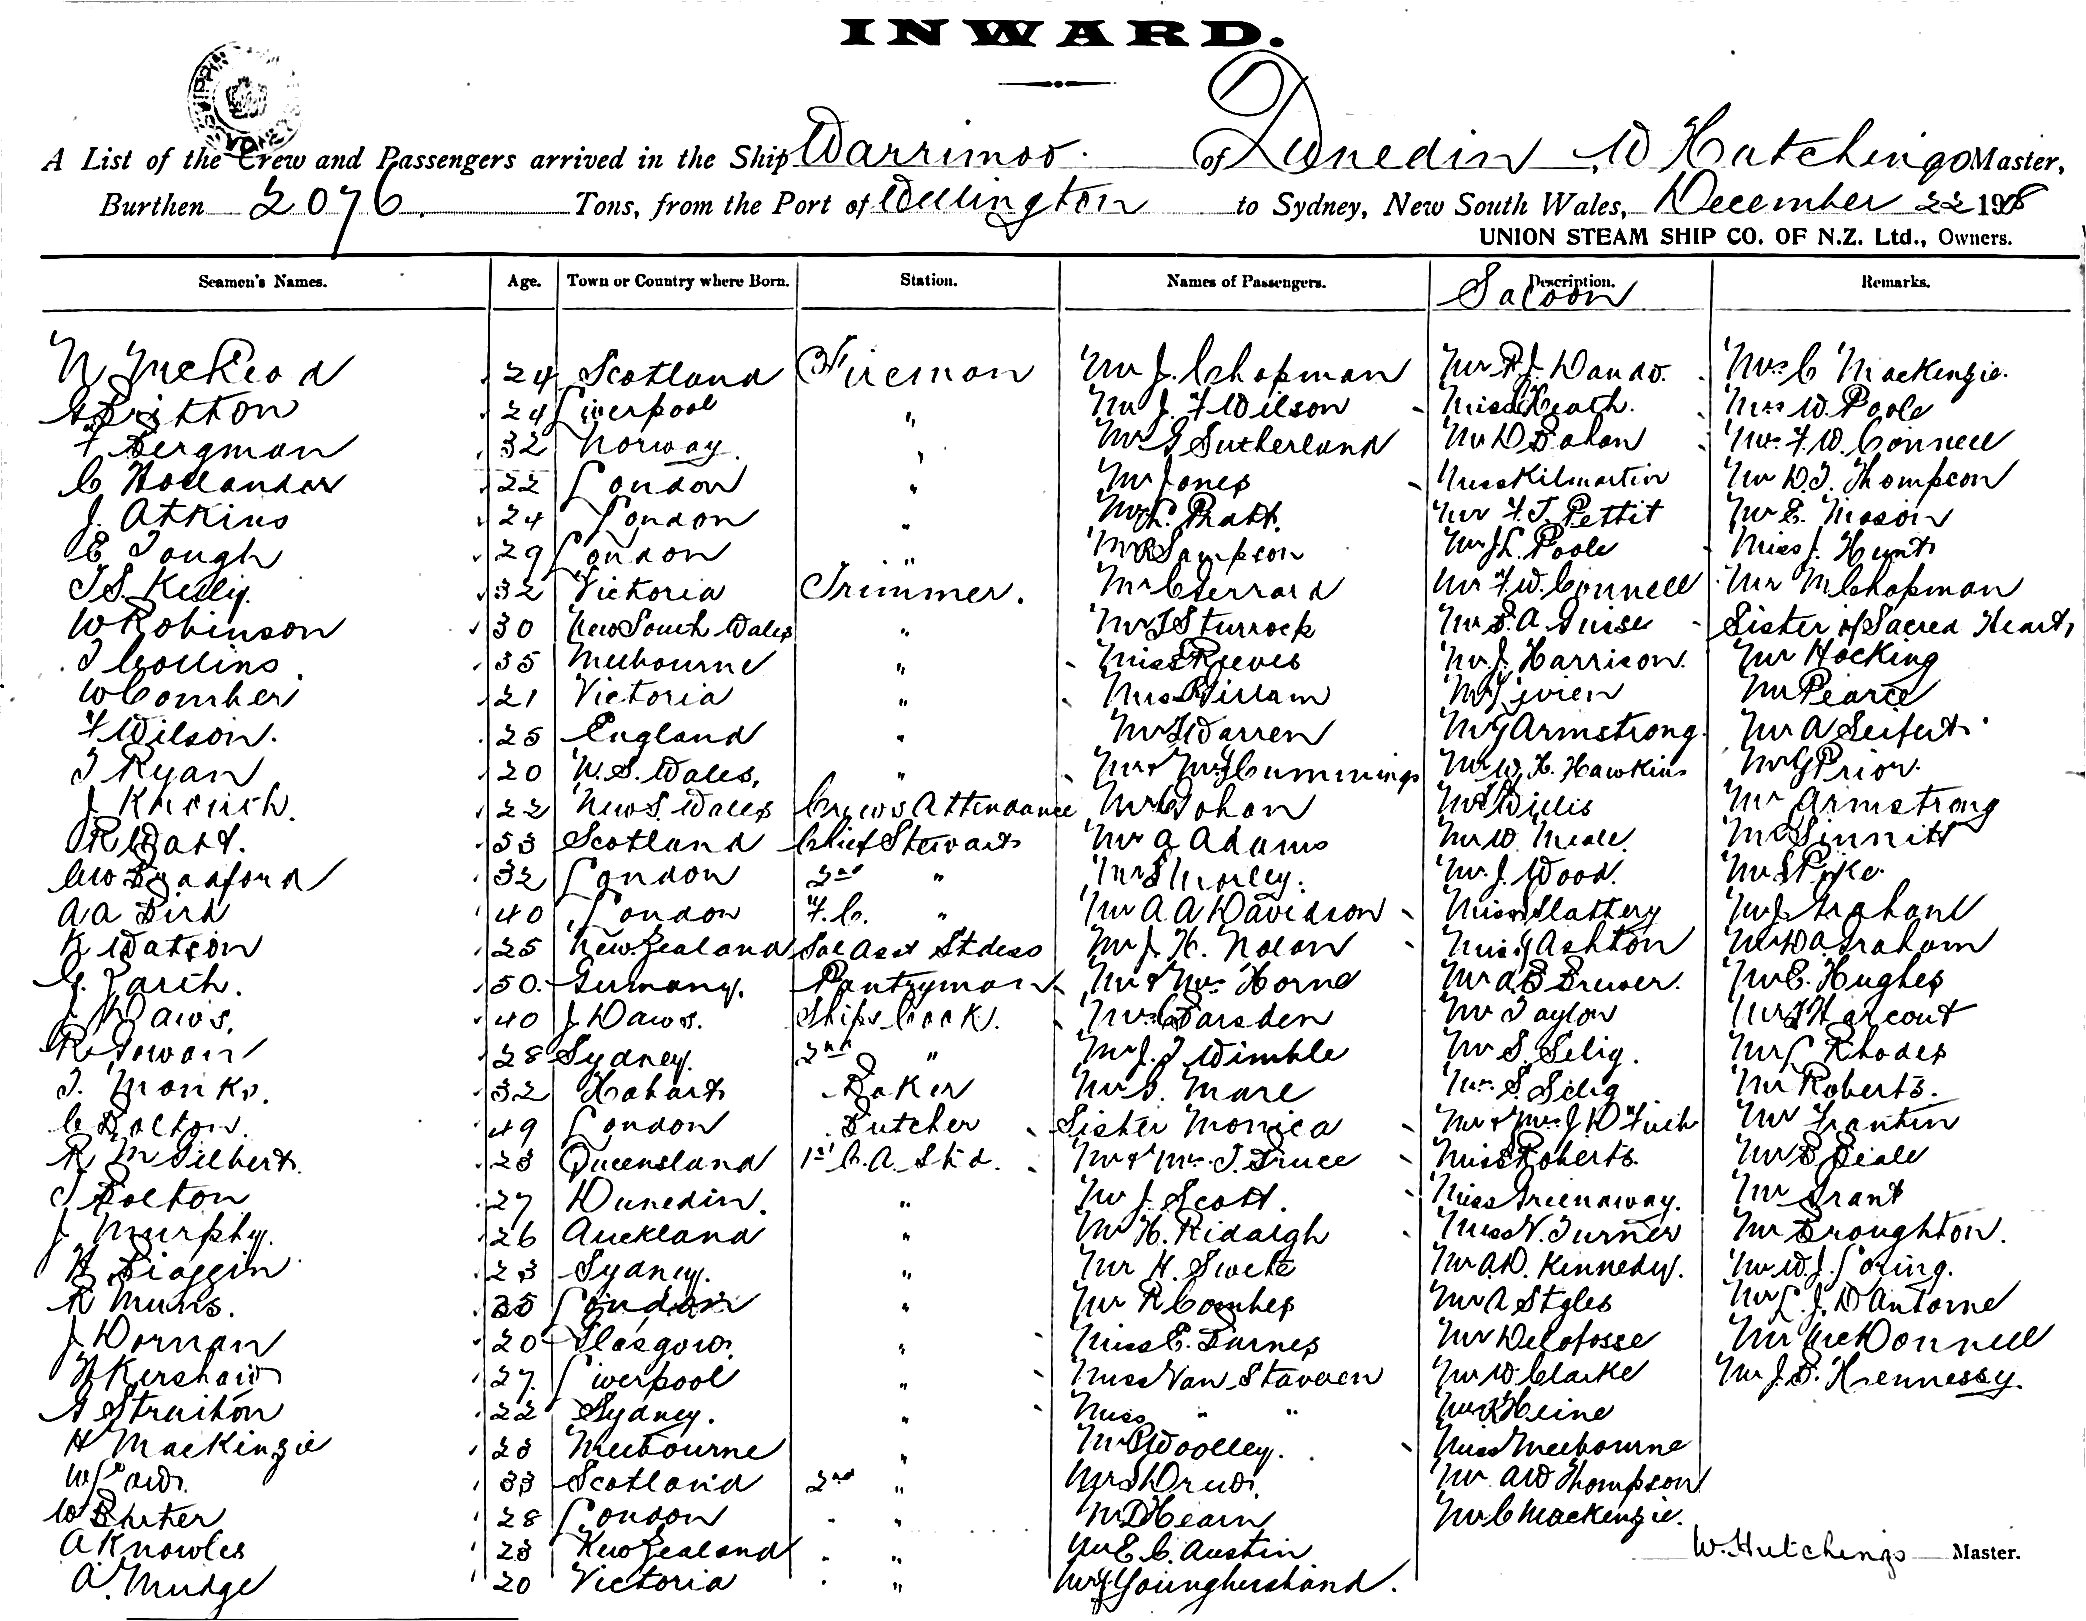 INWARD.
A List of the Crew and Passengers arrived in the Ship Warrimoo. of Dunedin, W Hutchings Master,
Burthen 2076. Tons, from the Port of Wellington to Sydney, New South Wales, December 22 1908
UNION STEAM SHIP CO. OF N.Z. Ltd., Owners.
Seamen's Names. Age. Town or Country where Born. Station. Names of Passengers. Description. Remarks.
Saloon
N McLeod 24 Scotland Fireman Mr J. Chapman Mr Mrs C Mackenzie.
24 Liverpool " Mr J. F Wilson Miss Heath. Mrs W. Poole
F Bergman 32 Norway. " Mr G Sutherland Mr D Bohan Mrs F. W. Connell
C Hollander 22 London " Mr Jones Miss Kilmartin Mr D. T. Thompson
J. Atkins 24 London " Mr L. Pratt. Mr F. J. Pettit Mr E. Mason
E Tough 29 London " Mr R Sampson Mr J L. Poole Miss J. Hunt
T S. Kelly. 32 Victoria Trimmer. Mr C Gerrard Mr F. W. Connell Mr M Chapman
W Robinson 30 New South Wales " Mr T Sturrock Mr S. A. Guise Sister of Sacred Heart,
T Collins. 35 Melbourne " Miss Reeves Mr J. Harrison. Mr Hocking
W Comber 21 Victoria " Miss Mr Pearce
F Wilson. 25 England " Mr Warren Mr Armstrong. Mr A Seifert.
T Ryan 20 N. S. Wales, " Mr & Mrs Cummings Mr W. H. Hawkins Mr G Prior.
J. 22 New S. Wales Crews Attendance Mr Willis Mr Armstrong
R Wast. 53 Scotland Chief Steward Mr A Adams Mr W. Meale. Mr Sinnitt
C W Bradford 32 London 2nd " Mr S Morley. Mr J. Wood. Mr S Pyke.
A A Bird 40 London F. C. " Mr A A Davidson Miss Slattery Mr J. Graham
R Watson 25 New Zealand Sal Asst Stdess Mr J. H. Nolan Miss Ashton Mr D A. Graham
G. Zarth. 50. Germany. Pantryman Mr & Mrs Horne Mr A B Brewer. Mr E. Hughes
J Daws. 40 J Daws. Ships Cook. Mrs C Barsden Mr Taylor Mr Harcout
R Gowan 28 Sydney. 2nd " Mr J. T Wimble Mr S. Selig. Mr L Rhodes
T. Monks. 32 Hobart Baker Mr S. Mare Mrs S. Selig Mr Roberts.
C Bolton. 49 London Butcher Sister Monica Mr & Mrs J. D Fuih Mr Frantin
R M Gilbert. 23 Queensland 1st C. A. Std. Mr & Mrs T. Bruce Miss Roberts. Mr B Beale
T Bolton 27 Dunedin. " Mr J. Scott. Miss Greenaway. Mr Grant
J. Murphy. 26 Auckland " Mr H. Ridalgh Miss V. Turner Mr Broughton.
23 Sydney. " Mr H. Mr A. D. Kennedy. Mr W. J. Loring.
R Muns. 35 London " Mr R Combes Mr A Styles Mr L. J. D Antoine
J Dornan 20 Glasgow. " Miss E. Barnes Mr Delafosse Mr McDonnell
H Kershaw 27 Liverpool " Miss Van Staveren Mr W. Clarke Mr J. S. Hennessy.
G Straiton 22 Sydney. " Miss " " Mr R Heine
H Mackinzie 23 Melbourne " Mr P Woolley. Miss Melbourne
W Law. 33 Scotland 2nd " Mr S Drew. Mr A W Thompson
W 28 London " Mr D Hearn Mr C Mackenzie.
A Knowles 23 New Zealand " Mr E. C. Austin
A. Mudge 20 Victoria " Mr J Younghusband.
W. Hutchings Master.